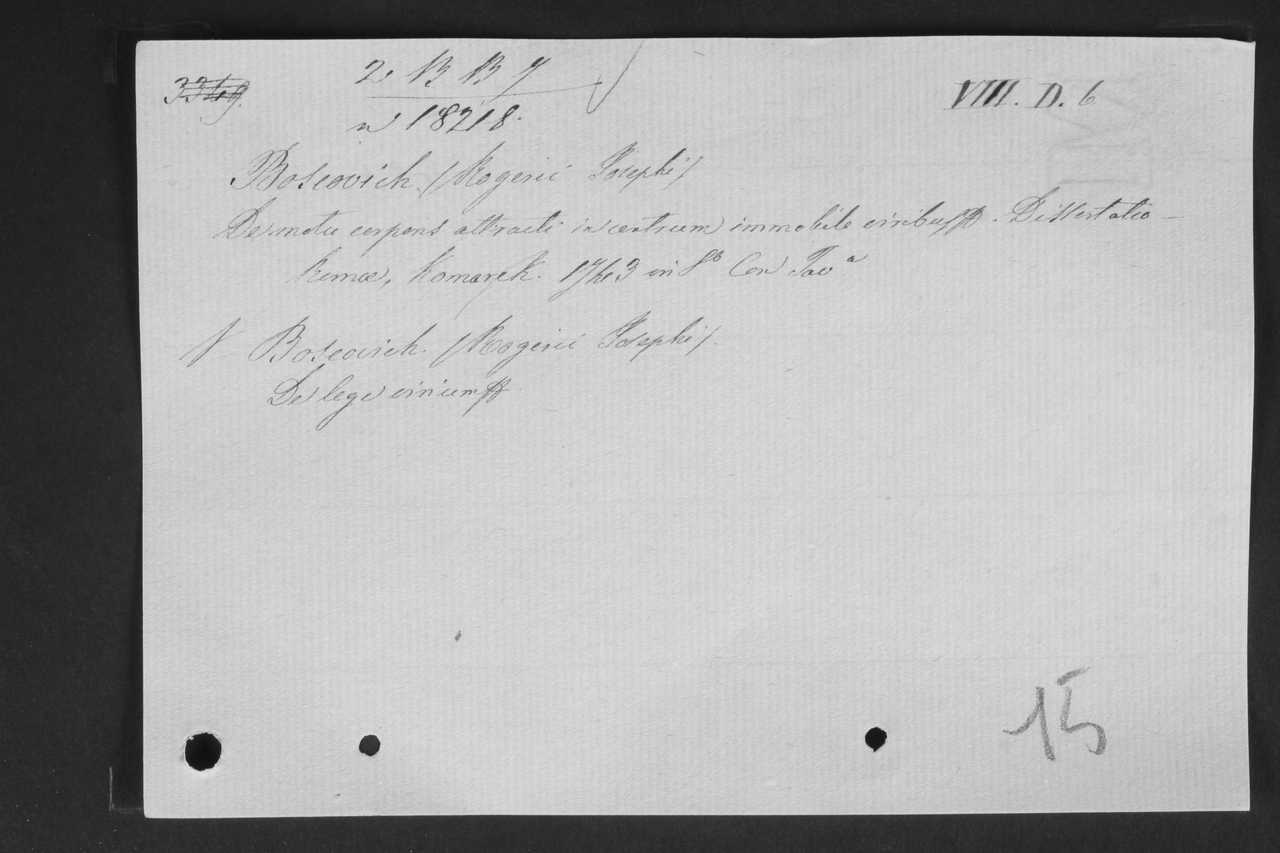 3349.
2. B B 7
n 18218.
VIII. D. 6
Boscovich (Rogerii Josephi)
De motu corporis attracti in centrum immobile viribus . Dissertatio —
Romæ, Komarek. 1743 in 8º Con Tavª
Boscovich (Rogerii Josephi).
De lege virium
15